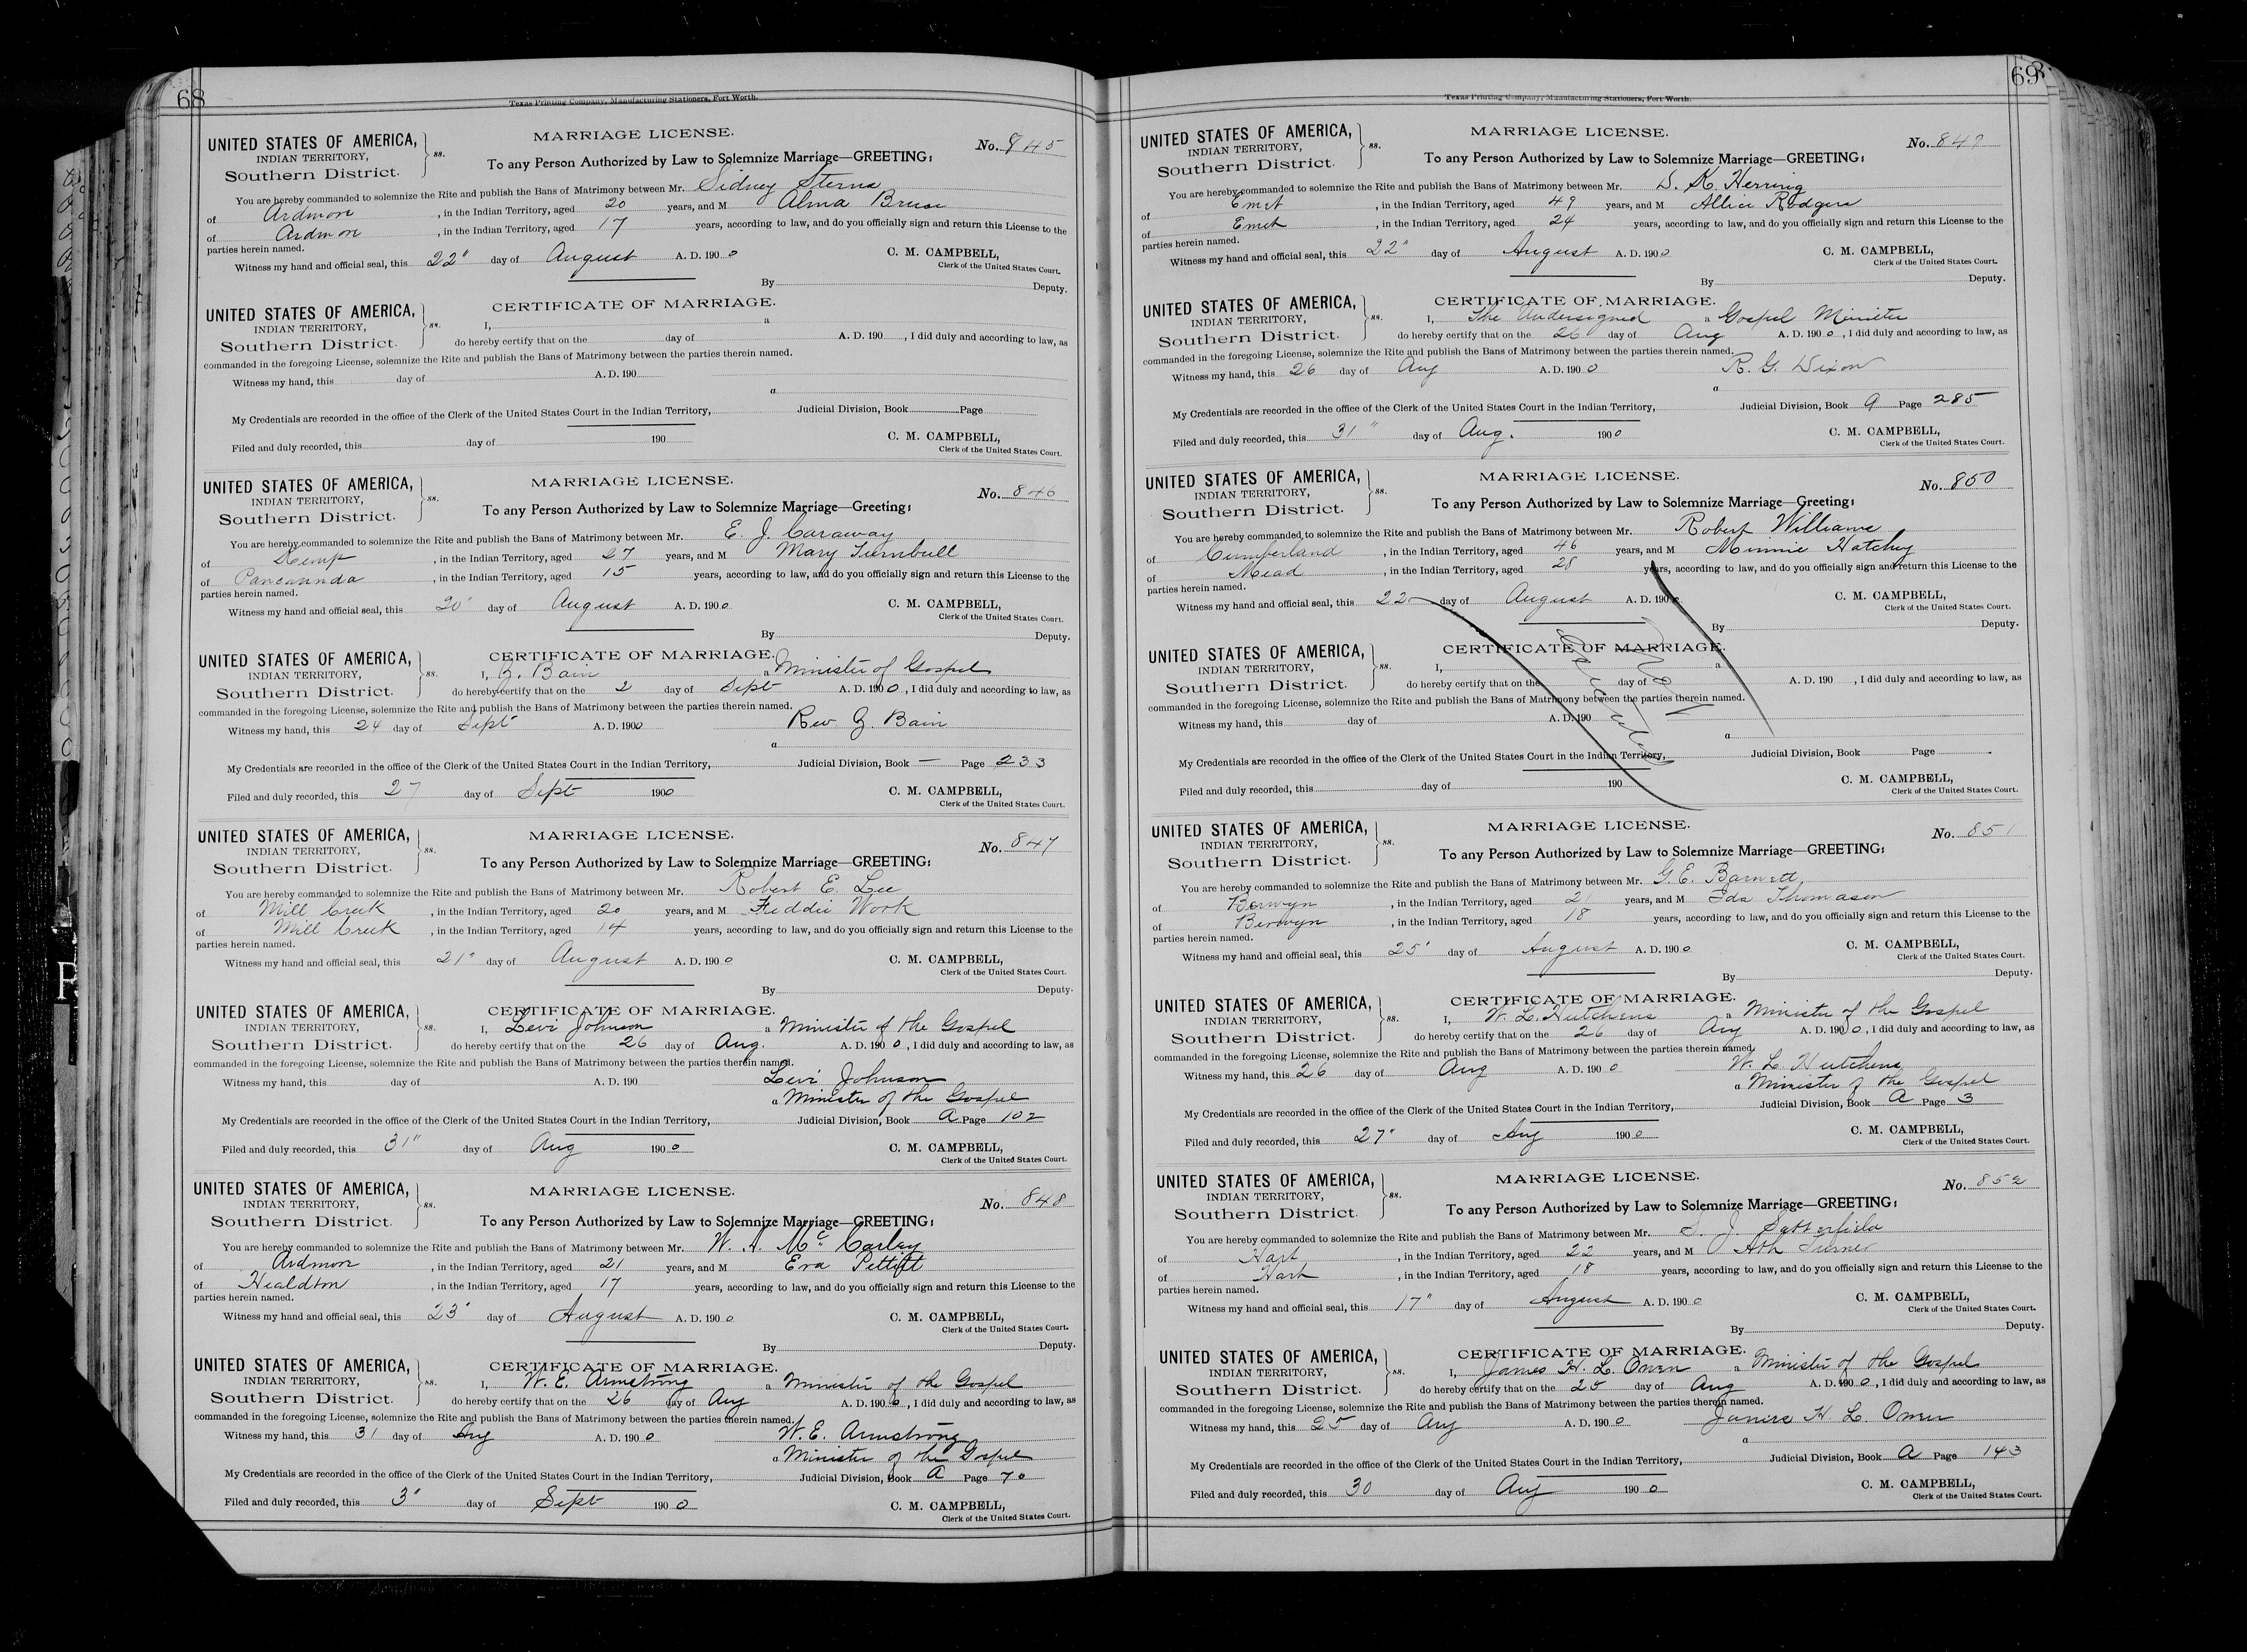 68
Texas Printing Company, Manufacturing Stationers, Fort Worth.
UNITED STATES OF AMERICA, MARRIAGE LICENSE. No. 845
INDIAN TERRITORY, ss. To any Person Authorized by Law to Solemnize Marriage—GREETING:
Southern District.
You are hereby commanded to solemnize the Rite and publish the Bans of Matrimony between Mr. Sidney Sterns
of Ardmore, in the Indian Territory, aged 20 years, and M Alma Bruce
of Ardmore, in the Indian Territory, aged 17 years, according to law, and do you officially sign and return this License to the
parties herein named.
Witness my hand and official seal, this 22" day of August A. D. 1900 C. M. CAMPBELL,
Clerk of the United States Court.
By Deputy.
UNITED STATES OF AMERICA, CERTIFICATE OF MARRIAGE.
INDIAN TERRITORY, ss. I, a
Southern District. do hereby certify that on the day of A. D. 190 , I did duly and according to law, as
commanded in the foregoing License, solemnize the Rite and publish the Bans of Matrimony between the parties therein named.
Witness my hand, this day of A. D. 190
a
My Credentials are recorded in the office of the Clerk of the United States Court in the Indian Territory, Judicial Division, Book Page
Filed and duly recorded, this day of 190 C. M. CAMPBELL,
Clerk of the United States Court.
UNITED STATES OF AMERICA, MARRIAGE LICENSE. No. 846
INDIAN TERRITORY, ss. To any Person Authorized by Law to Solemnize Marriage—Greeting:
Southern District.
You are hereby commanded to solemnize the Rite and publish the Bans of Matrimony between Mr. E. J. Caraway
of Kemp, in the Indian Territory, aged 27 years, and M Mary Turnbull
of , in the Indian Territory, aged 15 years, according to law, and do you officially sign and return this License to the
parties herein named.
Witness my hand and official seal, this 20" day of August A. D. 1900 C. M. CAMPBELL,
Clerk of the United States Court.
By Deputy.
UNITED STATES OF AMERICA, CERTIFICATE OF MARRIAGE.
INDIAN TERRITORY, ss. I, G. Bain a Minister of Gospel
Southern District. do hereby certify that on the 2 day of Sept A. D. 1900, I did duly and according to law, as
commanded in the foregoing License, solemnize the Rite and publish the Bans of Matrimony between the parties therein named.
Witness my hand, this 24 day of Sept A. D. 1900 Rev G. Bain
a
My Credentials are recorded in the office of the Clerk of the United States Court in the Indian Territory, Judicial Division, Book — Page 233
Filed and duly recorded, this 27 day of Sept 1900 C. M. CAMPBELL,
Clerk of the United States Court.
UNITED STATES OF AMERICA, MARRIAGE LICENSE. No. 847
INDIAN TERRITORY, ss. To any Person Authorized by Law to Solemnize Marriage—GREETING:
Southern District.
You are hereby commanded to solemnize the Rite and publish the Bans of Matrimony between Mr. Robert E. Lee
of Mill Creek, in the Indian Territory, aged 20 years, and M Freddie Work
of Mill Creek, in the Indian Territory, aged 14 years, according to law, and do you officially sign and return this License to the
parties herein named.
Witness my hand and official seal, this 21" day of August A. D. 1900 C. M. CAMPBELL,
Clerk of the United States Court.
By Deputy.
UNITED STATES OF AMERICA, CERTIFICATE OF MARRIAGE.
INDIAN TERRITORY, ss. I, Levi Johnson a Minister of the Gospel
Southern District. do hereby certify that on the 26 day of Aug. A. D. 1900, I did duly and according to law, as
commanded in the foregoing License, solemnize the Rite and publish the Bans of Matrimony between the parties therein named.
Witness my hand, this day of A. D. 190 Levi Johnson
a Minister of the Gospel
My Credentials are recorded in the office of the Clerk of the United States Court in the Indian Territory, Judicial Division, Book A Page 102
Filed and duly recorded, this 31" day of Aug 1900 C. M. CAMPBELL,
Clerk of the United States Court.
UNITED STATES OF AMERICA, MARRIAGE LICENSE. No. 848
INDIAN TERRITORY, ss. To any Person Authorized by Law to Solemnize Marriage—GREETING:
Southern District.
You are hereby commanded to solemnize the Rite and publish the Bans of Matrimony between Mr. W. A. McCarley
of Ardmore, in the Indian Territory, aged 21 years, and M Eva Pettitt
of Healdton, in the Indian Territory, aged 17 years, according to law, and do you officially sign and return this License to the
parties herein named.
Witness my hand and official seal, this 23" day of August A. D. 1900 C. M. CAMPBELL,
Clerk of the United States Court.
By Deputy.
UNITED STATES OF AMERICA, CERTIFICATE OF MARRIAGE.
INDIAN TERRITORY, ss. I, W. E. Armstrong a Minister of the Gospel
Southern District. do hereby certify that on the 26 day of Aug A. D. 1900, I did duly and according to law, as
commanded in the foregoing License, solemnize the Rite and publish the Bans of Matrimony between the parties therein named.
Witness my hand, this 31 day of Aug A. D. 1900 W. E. Armstrong
a Minister of the Gospel
My Credentials are recorded in the office of the Clerk of the United States Court in the Indian Territory, Judicial Division, Book A Page 70
Filed and duly recorded, this 3" day of Sept 1900 C. M. CAMPBELL,
Clerk of the United States Court.
69
Texas Printing Company, Manufacturing Stationers, Fort Worth.
UNITED STATES OF AMERICA, MARRIAGE LICENSE. No. 849
INDIAN TERRITORY, ss. To any Person Authorized by Law to Solemnize Marriage—GREETING:
Southern District.
You are hereby commanded to solemnize the Rite and publish the Bans of Matrimony between Mr. D. K. Herring
of Emet, in the Indian Territory, aged 49 years, and M Allice Rodgers
of Emet, in the Indian Territory, aged 24 years, according to law, and do you officially sign and return this License to the
parties herein named.
Witness my hand and official seal, this 22" day of August A. D. 1900 C. M. CAMPBELL,
Clerk of the United States Court.
By Deputy.
UNITED STATES OF AMERICA, CERTIFICATE OF MARRIAGE.
INDIAN TERRITORY, ss. I, The Undersigned a Gospel Minister
Southern District. do hereby certify that on the 26 day of Aug A. D. 1900, I did duly and according to law, as
commanded in the foregoing License, solemnize the Rite and publish the Bans of Matrimony between the parties therein named.
Witness my hand, this 26 day of Aug A. D. 1900 R. G. Dixon
a
My Credentials are recorded in the office of the Clerk of the United States Court in the Indian Territory, Judicial Division, Book a Page 285
Filed and duly recorded, this 31" day of Aug. 1900 C. M. CAMPBELL,
Clerk of the United States Court.
UNITED STATES OF AMERICA, MARRIAGE LICENSE. No. 850
INDIAN TERRITORY, ss. To any Person Authorized by Law to Solemnize Marriage—Greeting:
Southern District.
You are hereby commanded to solemnize the Rite and publish the Bans of Matrimony between Mr. Robert Williams
of Cumberland, in the Indian Territory, aged 46 years, and M Minnie
of Mead, in the Indian Territory, aged 28 years, according to law, and do you officially sign and return this License to the
parties herein named.
Witness my hand and official seal, this 22 day of August A. D. 1900 C. M. CAMPBELL,
Clerk of the United States Court.
By Deputy.
UNITED STATES OF AMERICA, CERTIFICATE OF MARRIAGE.
INDIAN TERRITORY, ss. I, a
Southern District. do hereby certify that on the day of A. D. 190 , I did duly and according to law, as
commanded in the foregoing License, solemnize the Rite and publish the Bans of Matrimony between the parties therein named.
Witness my hand, this day of A. D. 190
a
My Credentials are recorded in the office of the Clerk of the United States Court in the Indian Territory, Judicial Division, Book Page
Filed and duly recorded, this day of 190 C. M. CAMPBELL,
Clerk of the United States Court.
UNITED STATES OF AMERICA, MARRIAGE LICENSE. No. 851
INDIAN TERRITORY, ss. To any Person Authorized by Law to Solemnize Marriage—GREETING:
Southern District.
You are hereby commanded to solemnize the Rite and publish the Bans of Matrimony between Mr. G. E. Barnett
of Berwyn, in the Indian Territory, aged 21 years, and M Ida Thomason
of Berwyn, in the Indian Territory, aged 18 years, according to law, and do you officially sign and return this License to the
parties herein named.
Witness my hand and official seal, this 25" day of August A. D. 1900 C. M. CAMPBELL,
Clerk of the United States Court.
By Deputy.
UNITED STATES OF AMERICA, CERTIFICATE OF MARRIAGE.
INDIAN TERRITORY, ss. I, W. L. Hutchens a Minister of the Gospel
Southern District. do hereby certify that on the 26 day of Aug A. D. 1900, I did duly and according to law, as
commanded in the foregoing License, solemnize the Rite and publish the Bans of Matrimony between the parties therein named.
Witness my hand, this 26 day of Aug A. D. 1900 W. L. Hutchens
a Minister of the Gospel
My Credentials are recorded in the office of the Clerk of the United States Court in the Indian Territory, Judicial Division, Book A Page 3
Filed and duly recorded, this 27" day of Aug 1900 C. M. CAMPBELL,
Clerk of the United States Court.
UNITED STATES OF AMERICA, MARRIAGE LICENSE. No. 852
INDIAN TERRITORY, ss. To any Person Authorized by Law to Solemnize Marriage—GREETING:
Southern District.
You are hereby commanded to solemnize the Rite and publish the Bans of Matrimony between Mr. S. J. Satterfield
of Hart, in the Indian Territory, aged 22 years, and M Turner
of Hart, in the Indian Territory, aged 18 years, according to law, and do you officially sign and return this License to the
parties herein named.
Witness my hand and official seal, this 17" day of August A. D. 1900 C. M. CAMPBELL,
Clerk of the United States Court.
By Deputy.
UNITED STATES OF AMERICA, CERTIFICATE OF MARRIAGE.
INDIAN TERRITORY, ss. I, James H. L. Owen a Minister of the Gospel
Southern District. do hereby certify that on the 25 day of Aug A. D. 1900, I did duly and according to law, as
commanded in the foregoing License, solemnize the Rite and publish the Bans of Matrimony between the parties therein named.
Witness my hand, this 25 day of Aug A. D. 1900 James H. L. Owen
a
My Credentials are recorded in the office of the Clerk of the United States Court in the Indian Territory, Judicial Division, Book A Page 143
Filed and duly recorded, this 30 day of Aug 1900 C. M. CAMPBELL,
Clerk of the United States Court.